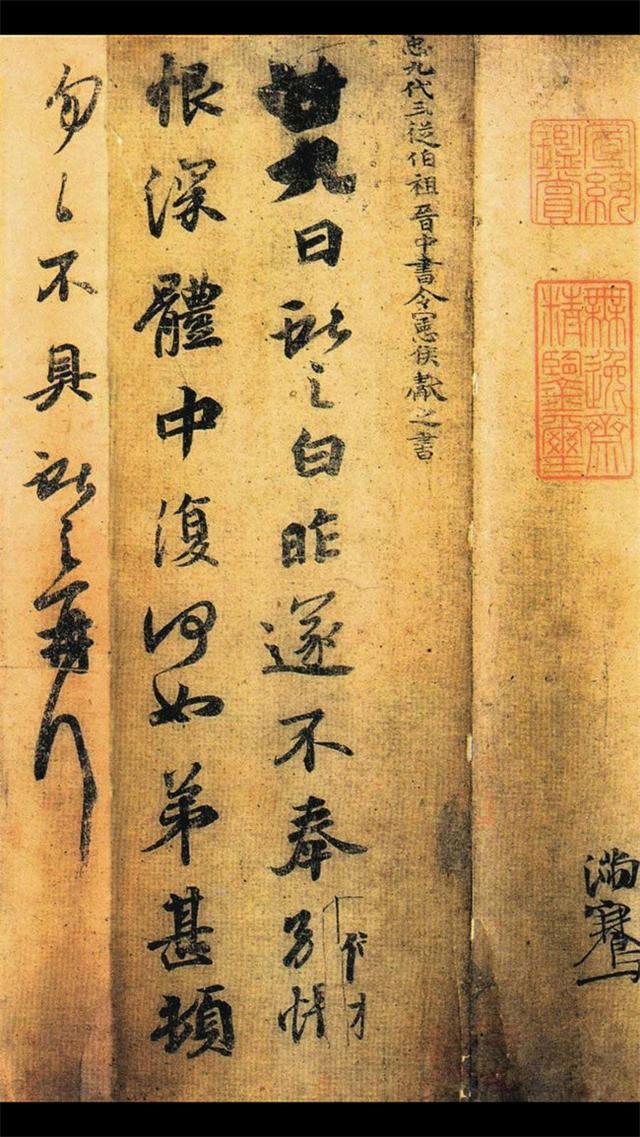 宣統
鑑賞
無逸齋
精鑒璽
滿騫
九代三從伯祖晉中書令憲侯獻之書
廿九日獻之白昨遂不奉別悵
恨深體中復何如弟甚頓
匆々不具獻之再拜